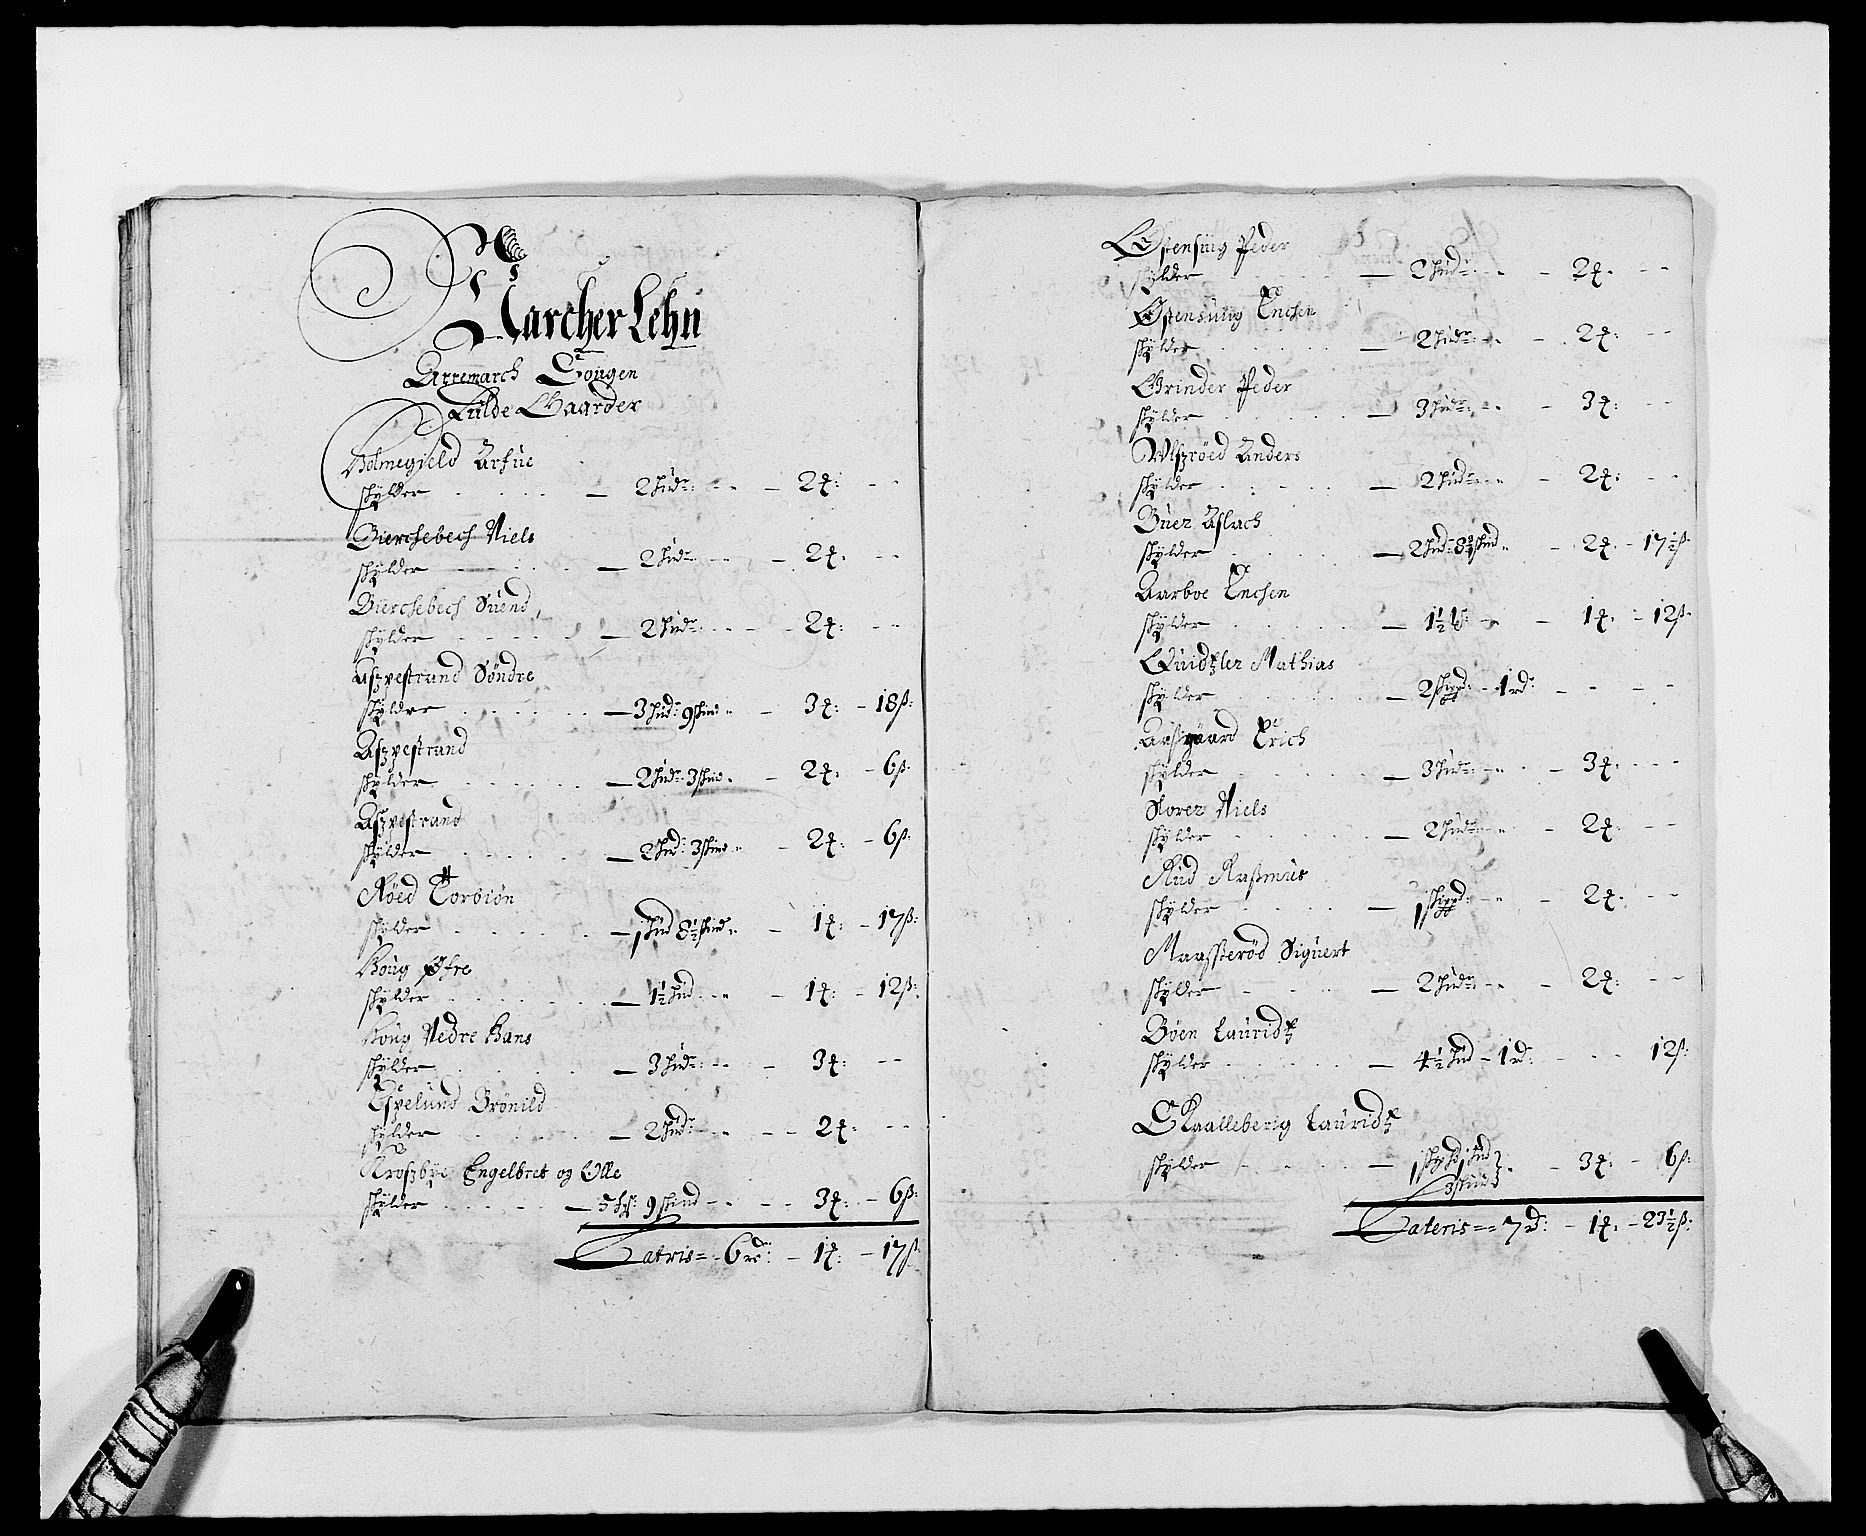 Marcher Lehn
Arremarch Sougen
Fulde Gaarder
Holmegield Arfue
skylder - 2 hud: - 2 ƶ: - -
Bierchebech Niels
skylder - 2 hud: - 2 ƶ: - -
Bierchebech Suend
skylder - 2 hud: - 2 ƶ: - -
Aszpestrand Søndre
skylder - 3 hud: 9 skind - 3 ƶ: - 18 ß:
Aszpestrand
skylder - 2 hud: 3 skind - 2 ƶ: - 6 ß:
Aszpestrand
skylder - 2 hud: 3 skind - 2 ƶ: - 6 ß:
Røed Torbiøn
skylder - 1 hud 8½ skind - 1 ƶ: - 17 ß:
Houg Øfre
skylder - 1½ hud - 1 ƶ: - 12 ß:
Houg Nedre Hans
skylder - 3 hud: - 3 ƶ: - -
Espelund Brønild
skylder - 2 hud: - 2 ƶ: - -
Kroszbye Engelbret og Olle
skylder - 9 skind - 3 ƶ: - 6 ß:
Lateris - 6 rd: - 1 ƶ: - 17 ß:
Ostensuig Peder
skylder - 2 hud: - 2 ƶ: - -
Ostensuiig Enchen
skylder - 2 hud: - 2 ƶ: - -
Grinder Peder
skylder - 3 hud: - 3 ƶ: - -
Ulszrøed Anders
skylder - 2 hud: - 2 ƶ: - -
Buer Aslach
skylder - 2 hud: 8¾ skind - 2 ƶ: - 17½ ß:
Aarboe Enchen
skylder - 1½ - 1 ƶ: - 12 ß:
Quidtzler Mathias
skylder - 2 skippd: - 1 rd: - -
Aasgaard Erich
skylder - 3 hud: - 3 ƶ: - -
Storer Niels
skylder - 2 hud: - 2 ƶ: - -
Rud Rasmus
skylder - 1 skippd: - 2 ƶ: - -
Maasterød Siguert
skylder - 2 hud: - 2 ƶ: - -
Bøen Lauridtz
skylder - 4½ hud - 1 rd: - 12 ß:
Kaalleberig Lauridtz
skylder - 1 hud - 3 ƶ: - 6 ß:
3 skind
Lateris - 7 rd: - 1 ƶ: - 23½ ß: